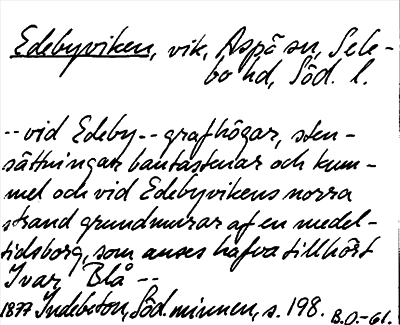 Edebyviken, vik, Aspö sn, Sele-
bo hd, Söd. l.
-- vid Edeby -- grafhögar, sten-
sättningar bautastenar och kum-
mel och vid Edebyvikens norra
strand grundmurar af en medel-
tidsborg, som anses hafva tillhört
Ivar Blå --
1877 Indebetou, Söd. minnen, s. 198. B.O.-61.